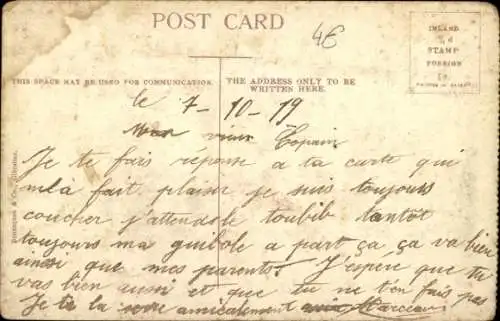 POST CARD
4€
INLAND
½d
STAMP
FOREIGN
1d.
THIS SPACE MAY BE USED FOR COMMUNICATION.
THE ADDRESS ONLY TO BE
WRITTEN HERE.
le 7-10-19
Mon vieux Copain
Je te fais réponse a ta carte qui
m'a fait plaisir je suis toujours
coucher j'attend le toubib tantôt
toujours ma guibole a part ça ça va bien
ainsi que mes parents. J'espére que tu
vas bien aussi et que tu ne t'en fais pas
Je te la amicalement Marceau